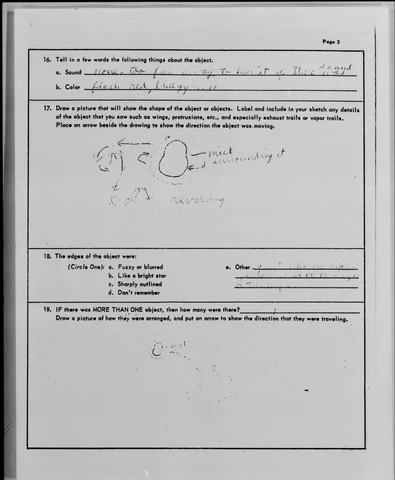 Page 3
16. Tell in a few words the following things about the object.
a. Sound none too far away to hear it if there was sound
b. Color flash red,
17. Draw a picture that will show the shape of the object or objects. Label and include in your sketch any details
of the object that you saw such as wings, protrusions, etc., and especially exhaust trails or vapor trails.
Place an arrow beside the drawing to show the direction the object was moving.
mist
surrounding it
revolving
18. The edges of the object were:
(Circle One): a. Fuzzy or blurred
b. Like a bright star
c. Sharply outlined
d. Don't remember
e. Other
19. IF there was MORE THAN ONE object, then how many were there?
Draw a picture of how they were arranged, and put an arrow to show the direction that they were traveling.